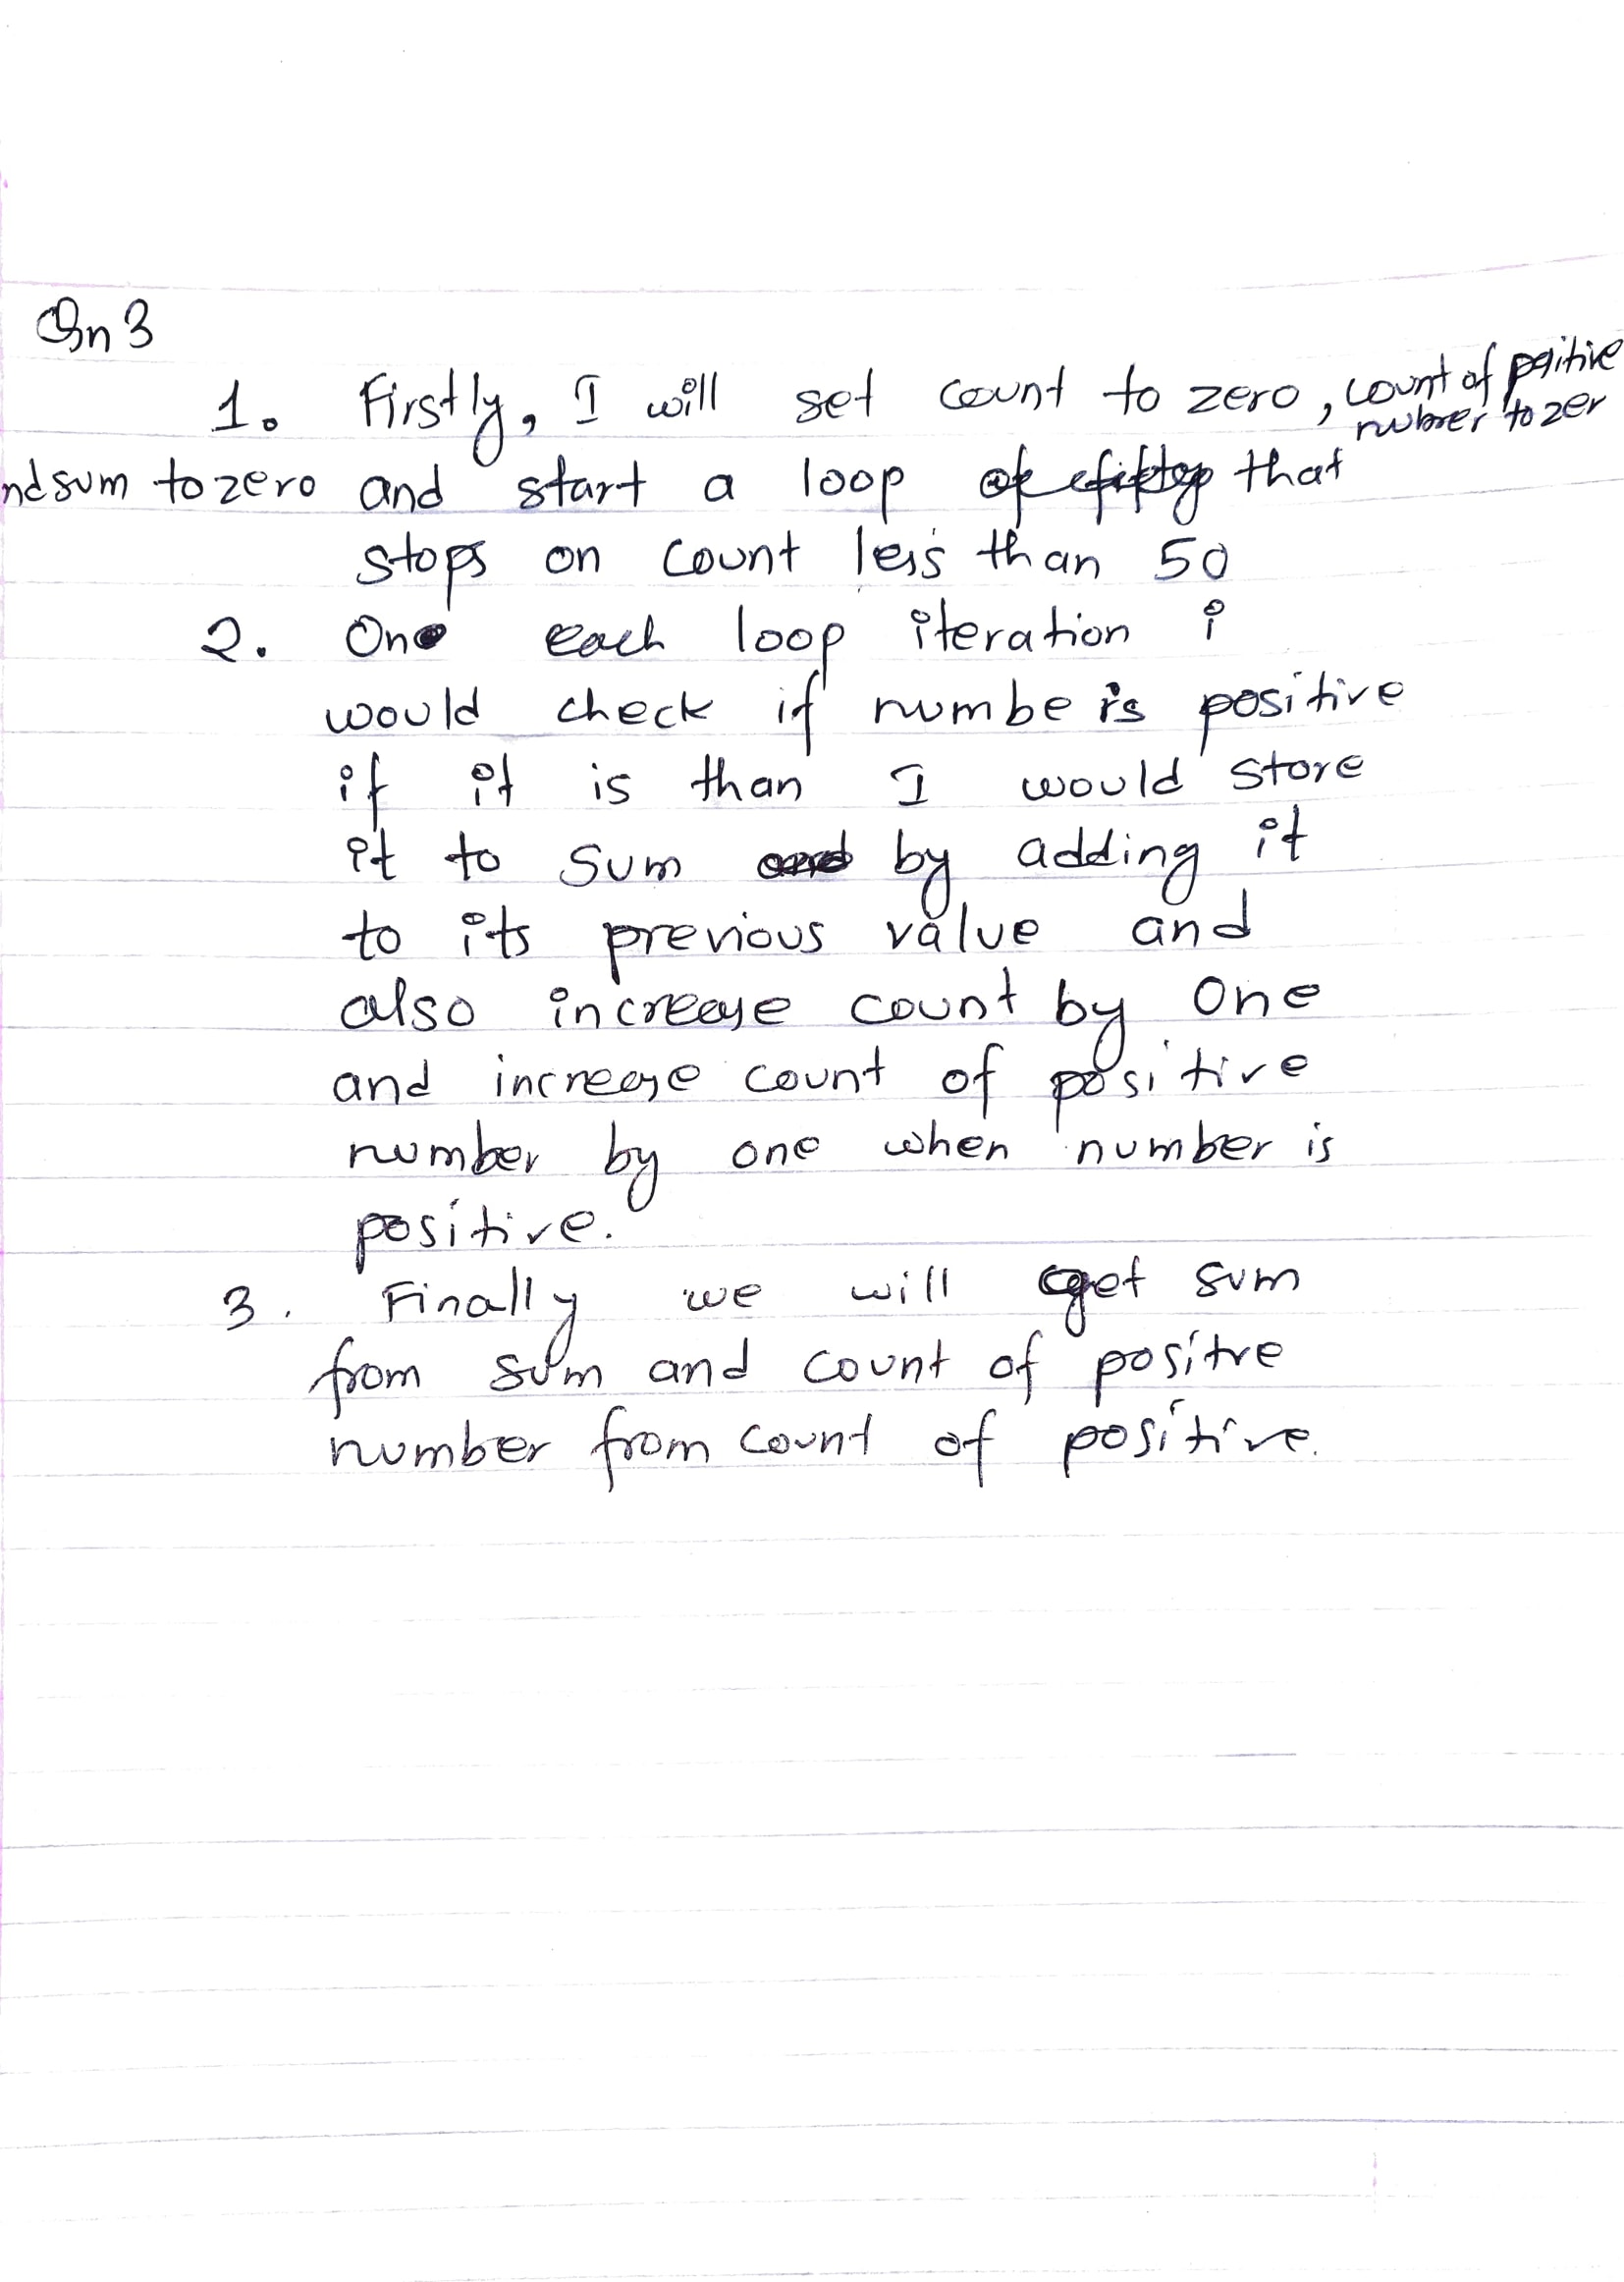 Qn 3
1. Firstly, I will set count to zero, count of positive
nubrer to zer
nd sum to zero and start a loop that
stops on count less than 50
2. On each loop iteration i
would check if numbe is positive
if it is than I would store
it to sum by adding it
to its previous value and
also increase count by One
and increase count of positive
number by one when number is
positive.
3. Finally we will get sum
from sum and count of positre
number from count of positive.